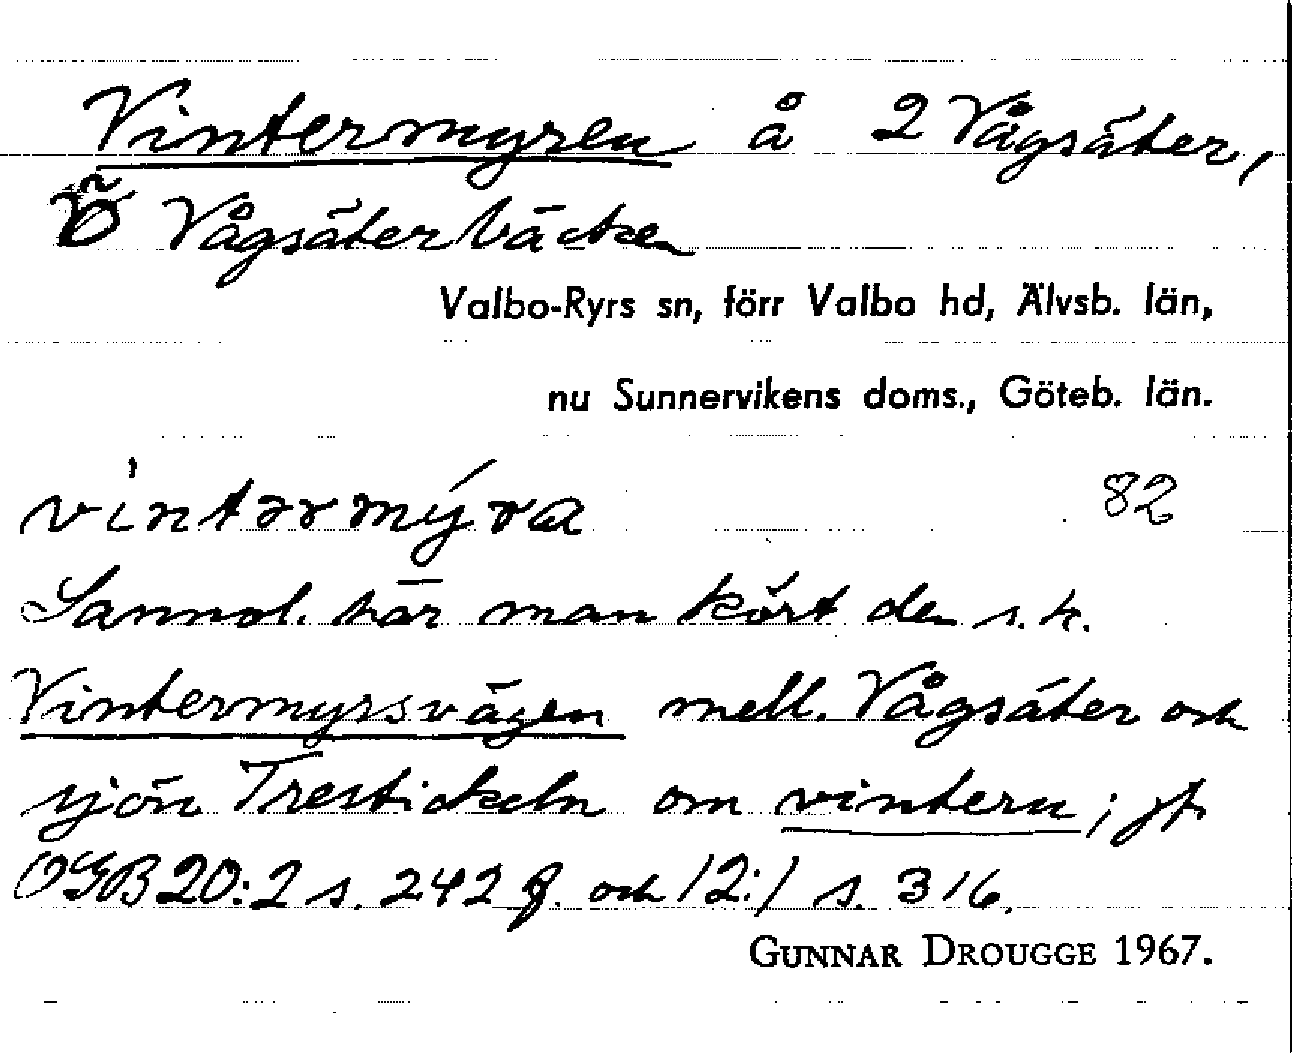 Vintermyren å 2 Vågsäter,
Ö Vågsäterbäcken
Valbo-Ryrs sn, förr Valbo hd, Älvsb. län,
nu Sunnervikens doms., Göteb. län.
vìntərmýra 82
Sannol. här man kört den s.k.
Vintermyrsvägen mell. Vågsäter och
sjön Trestickeln om vintern; jf.
OGB 20:2 s. 242 f. och 12:1 s. 316.
GUNNAR DROUGGE 1967.